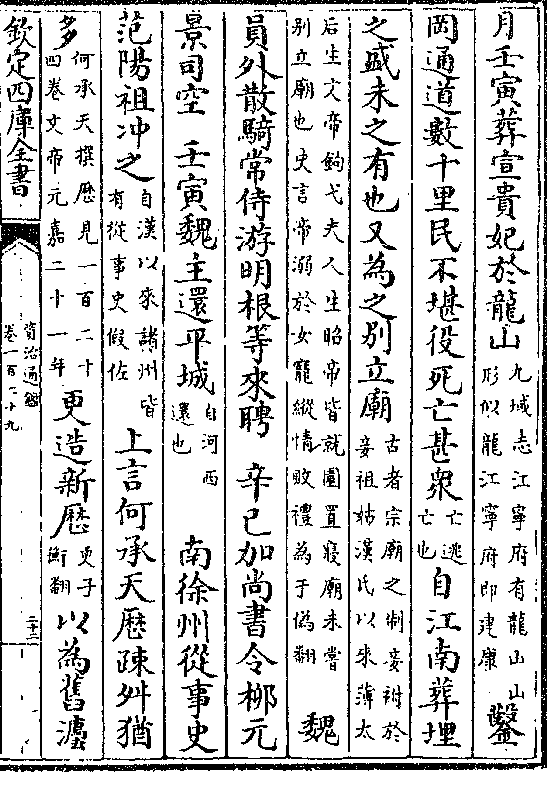 月壬寅葬宣貴妃於龍山九域志江寧府有龍山山形似龍江寧府即建康鑿
岡通道數十里民不堪役死亡甚衆亡逃亡也自江南葬埋
之盛未之有也又為之别立廟古者宗廟之制妾祔於妾祖姑漢氏以來薄太
后生文帝鉤弋夫人生昭帝皆就園置寢廟未嘗别立廟也史言帝溺於女寵縱情敗禮為于偽翻魏
員外散騎常侍游明根等來聘　辛巳加尚書令柳元
景司空　壬寅魏主還平城自河西還也　南徐州從事史
范陽祖冲之自漢以來諸州皆有從事史假佐上言何承天厯疎舛猶
多何承天撰厯見一百二十四卷文帝元嘉二十一年更造新厯更子衡翻以為舊灋
欽定四庫全書
資治通鑑
卷一百二十九
二十二